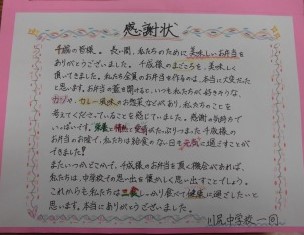 感謝状
千成の皆様。長い間、私たちのために美味しいお弁当を
ありがとうございました。千成様のまごころを、美味しく
頂いてきました。私たち全員のお弁当を作るのは、本当に大変だった
と思います。お弁当の蓋を開けると、いつも私たちが好きそうな、
カレー風味のお惣菜などがあり、私たちのことを
考えてくださっていることを感じていました。感謝の気持ちで
いっぱいです。栄養と情熱と愛情がたっぷりつまった千成様の
お弁当のお陰で、私たちは給食のない日も元気に過すことが
できました!
またいつかどこかで、千成様のお弁当を頂く機会があれば、
私たちは、中学校での思い出を懐かしく思い出すことでしょう。
これからも私たちは三食しっかり食べて健康に過ごしたいと
思います。本当にありがとうございました。
中学校 一同